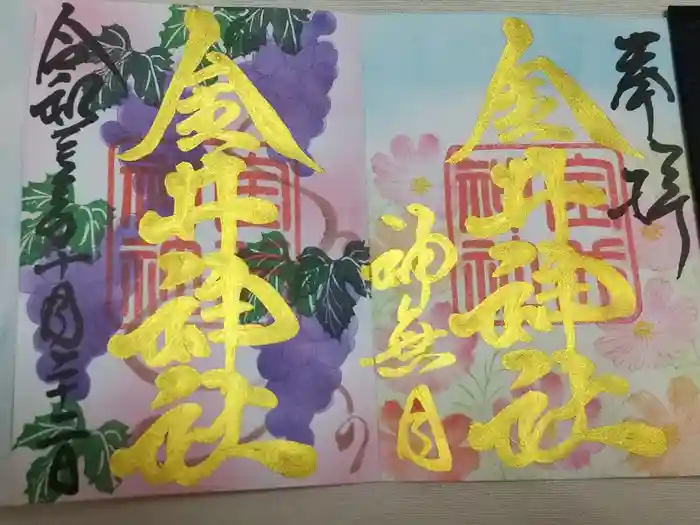 奉拝
金井神社
神無月
金井神社
令和三年十月二十二日